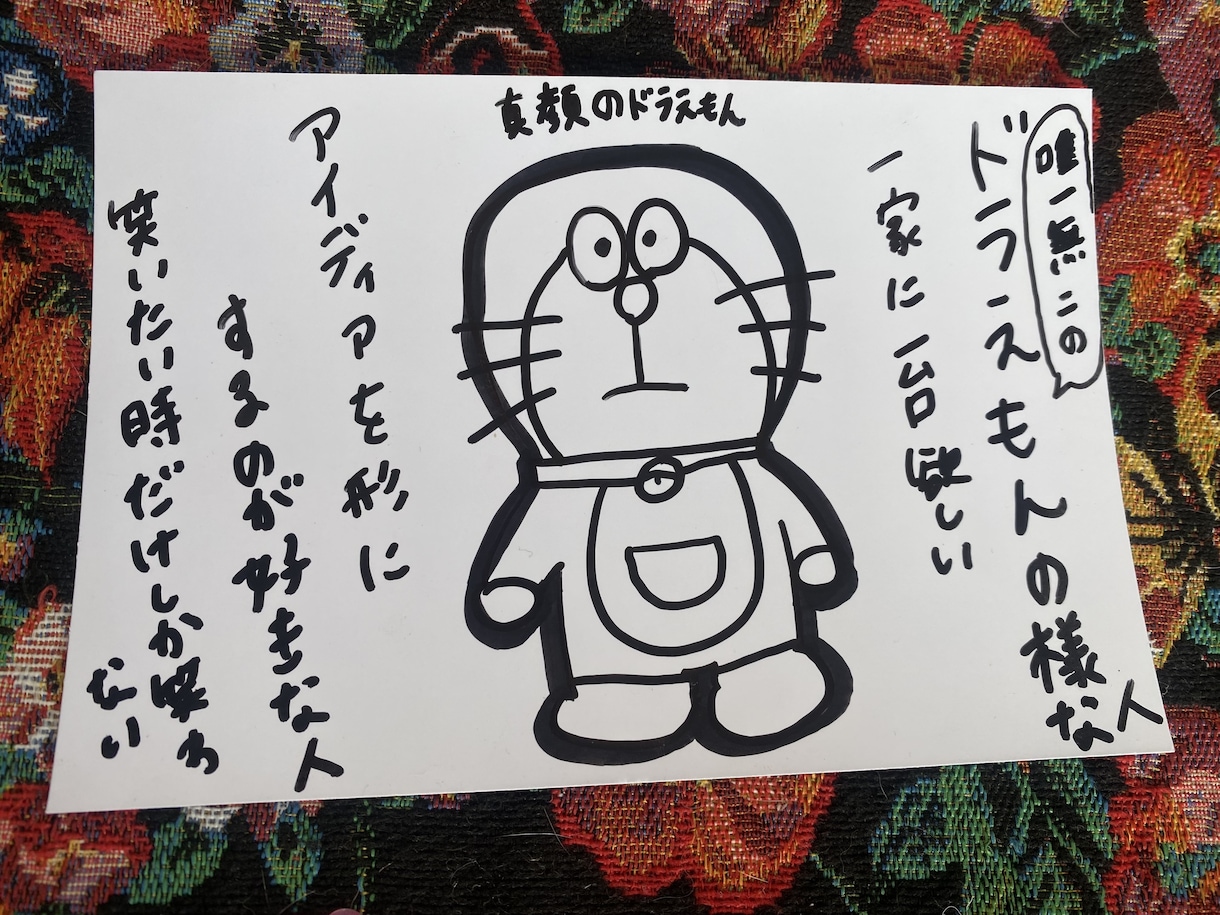 真顔のドラえもん
唯一無二の
ドラえもんの様な人
一家に一台欲しい
アイディアを形に
するのが好きな人
笑いたい時だけしか笑わ
ない